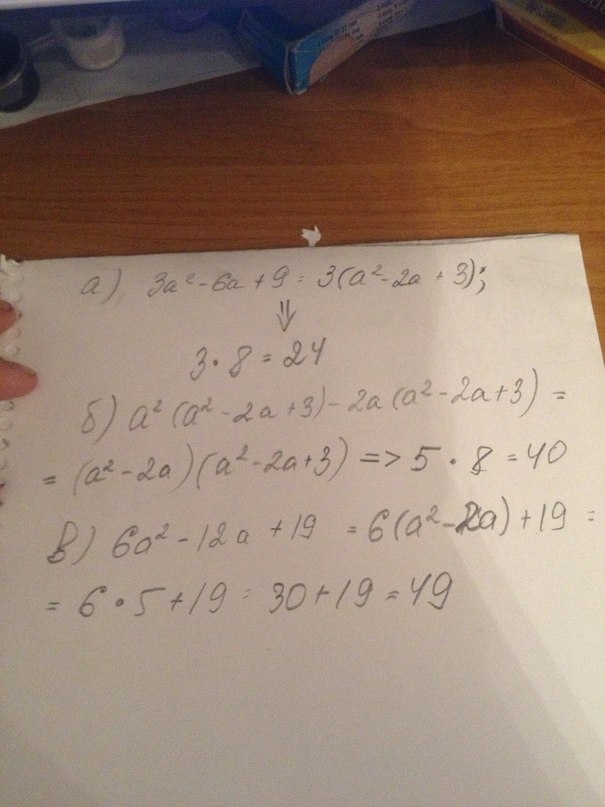 а) 3a² - 6a + 9 = 3(a² - 2a + 3);
⇓
3 • 8 = 24
б) a² (a² - 2a + 3) - 2a (a² - 2a + 3) =
= (a² - 2a) (a² - 2a + 3) => 5 • 8 = 40
в) 6a² - 12a + 19 = 6(a² - 2a) + 19 =
= 6 • 5 + 19 = 30 + 19 = 49